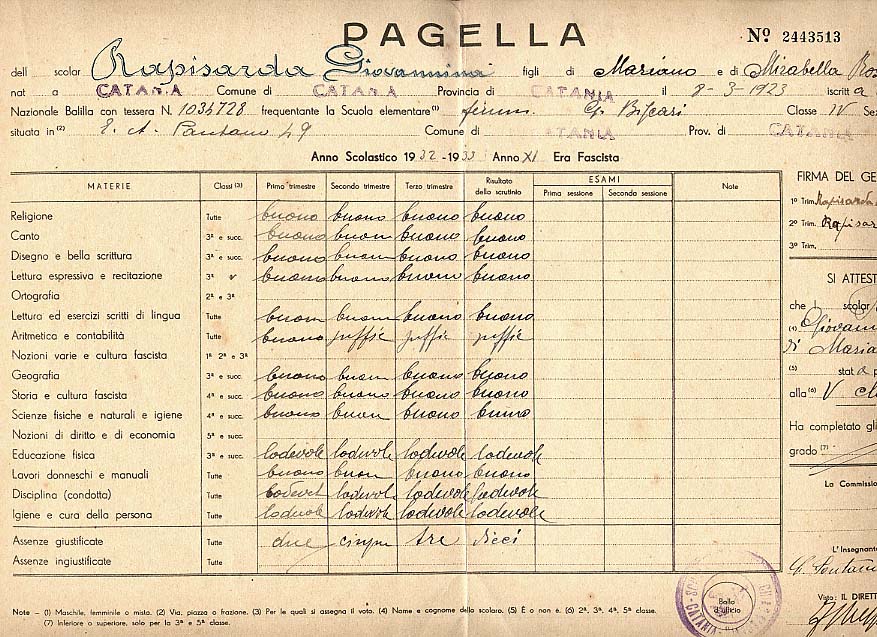 PAGELLA
Nº 2443513
dell scolar Rapisarda Giovannina figli di Mariano e di Mirabella Ros
nat a CATANIA Comune di CATANIA Provincia di CATANIA il 8-3-1923 iscritt a
Nazionale Balilla con tessera N. 1034728 frequentante la Scuola elementare (1) femm. Biscari Classe IV Se
situata in (2) Pantano 49 Comune di CATANIA Prov. di CATANIA
Anno Scolastico 1932-1933 Anno XI Era Fascista
MATERIE Classi (3) Primo trimestre Secondo trimestre Terzo trimestre Risultato dello scrutinio ESAMI Prima sessione Seconda sessione Note
Religione Tutte buono buono buono buono
Canto 3ª e succ. buono buon buono buono
Disegno e bella scrittura Tutte buono buon buono buono
Lettura espressiva e recitazione 3ª buono buono buono buono
Ortografia 2ª e 3ª
Lettura ed esercizi scritti di lingua Tutte buon buon buono buono
Aritmetica e contabilità Tutte buono suffic suffic suffic
Nozioni varie e cultura fascista 1ª 2ª e 3ª
Geografia 3ª e succ. buono buon buono buono
Storia e cultura fascista 4ª e succ. buono buono buono buono
Scienze fisiche e naturali e igiene 4ª e succ. buono buon buono buono
Nozioni di diritto e di economia 5ª e succ.
Educazione fisica 3ª e succ. lodevole lodevole lodevole lodevole
Lavori donneschi e manuali Tutte buono buon buono buono
Disciplina (condotta) Tutte lodevol lodevole lodevole lodevole
Igiene e cura della persona Tutte lodevole lodevole lodevole lodevole
Assenze giustificate Tutte due cinque tre dieci
Assenze ingiustificate Tutte
Note – (1) Maschile, femminile o mista. (2) Via, piazza o frazione. (3) Per le quali si assegna il voto. (4) Nome e cognome dello scolaro. (5) È o non è. (6) 2ª, 3ª, 4ª, 5ª classe.
(7) Inferiore o superiore, solo per la 3ª e 5ª classe.
Bollo d'ufficio
CATANIA
FIRMA DEL GE
1º Trim. Rapisarda
2º Trim. Rapisar
3º Trim.
SI ATTEST
che l scolar
(4) Giovann
di Maria
(5) stat a p
alla (6) V cl
Ha completato gli
grado (7)
La Commissio
L'Insegnante
Visto: IL DIRETT